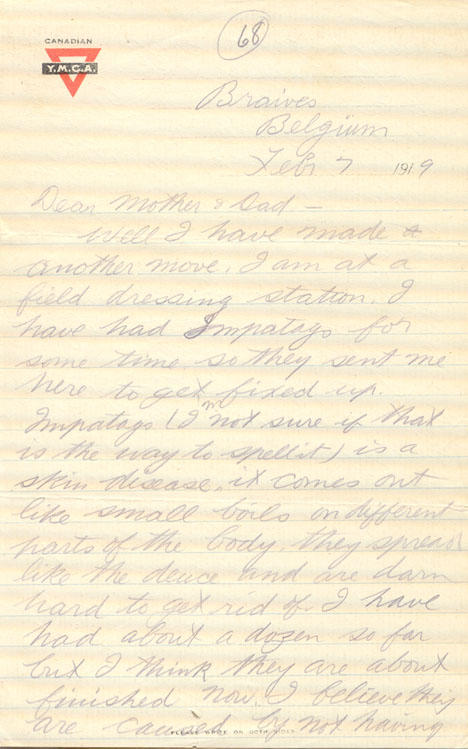 68
CANADIAN
Y.M.C.A.
Braives
Belgium
Feb 7 1919
Dear Mother & Dad -
Well I have made a
another move. I am at a
field dressing station. I
have had Impatago for
some time so they sent me
here to get fixed up.
Impatago (I'm not sure if that
is the way to spell it) is a
skin disease, it comes out
like small boils on different
parts of the body, they spread
like the deuce and are darn
hard to get rid of. I have
had about a dozen so far
but I think they are about
finished now. I believe they
are caused by not having
PLEASE WRITE ON BOTH SIDES